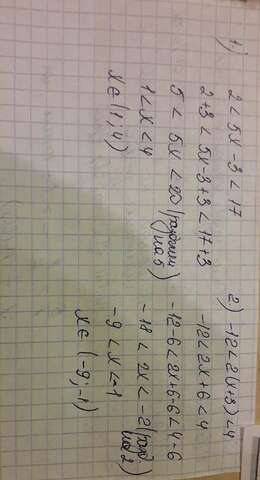 1) 2 < 5x - 3 < 17
2+3 < 5x-3+3 < 17+3
5 < 5x < 20 (разделим на 5)
1 < x < 4
x ∈ (1; 4)
2) -12 < 2(x+3) < 4
-12 < 2x + 6 < 4
-12-6 < 2x+6-6 < 4-6
-18 < 2x < -2 (разд на 2)
-9 < x < -1
x ∈ (-9; -1)